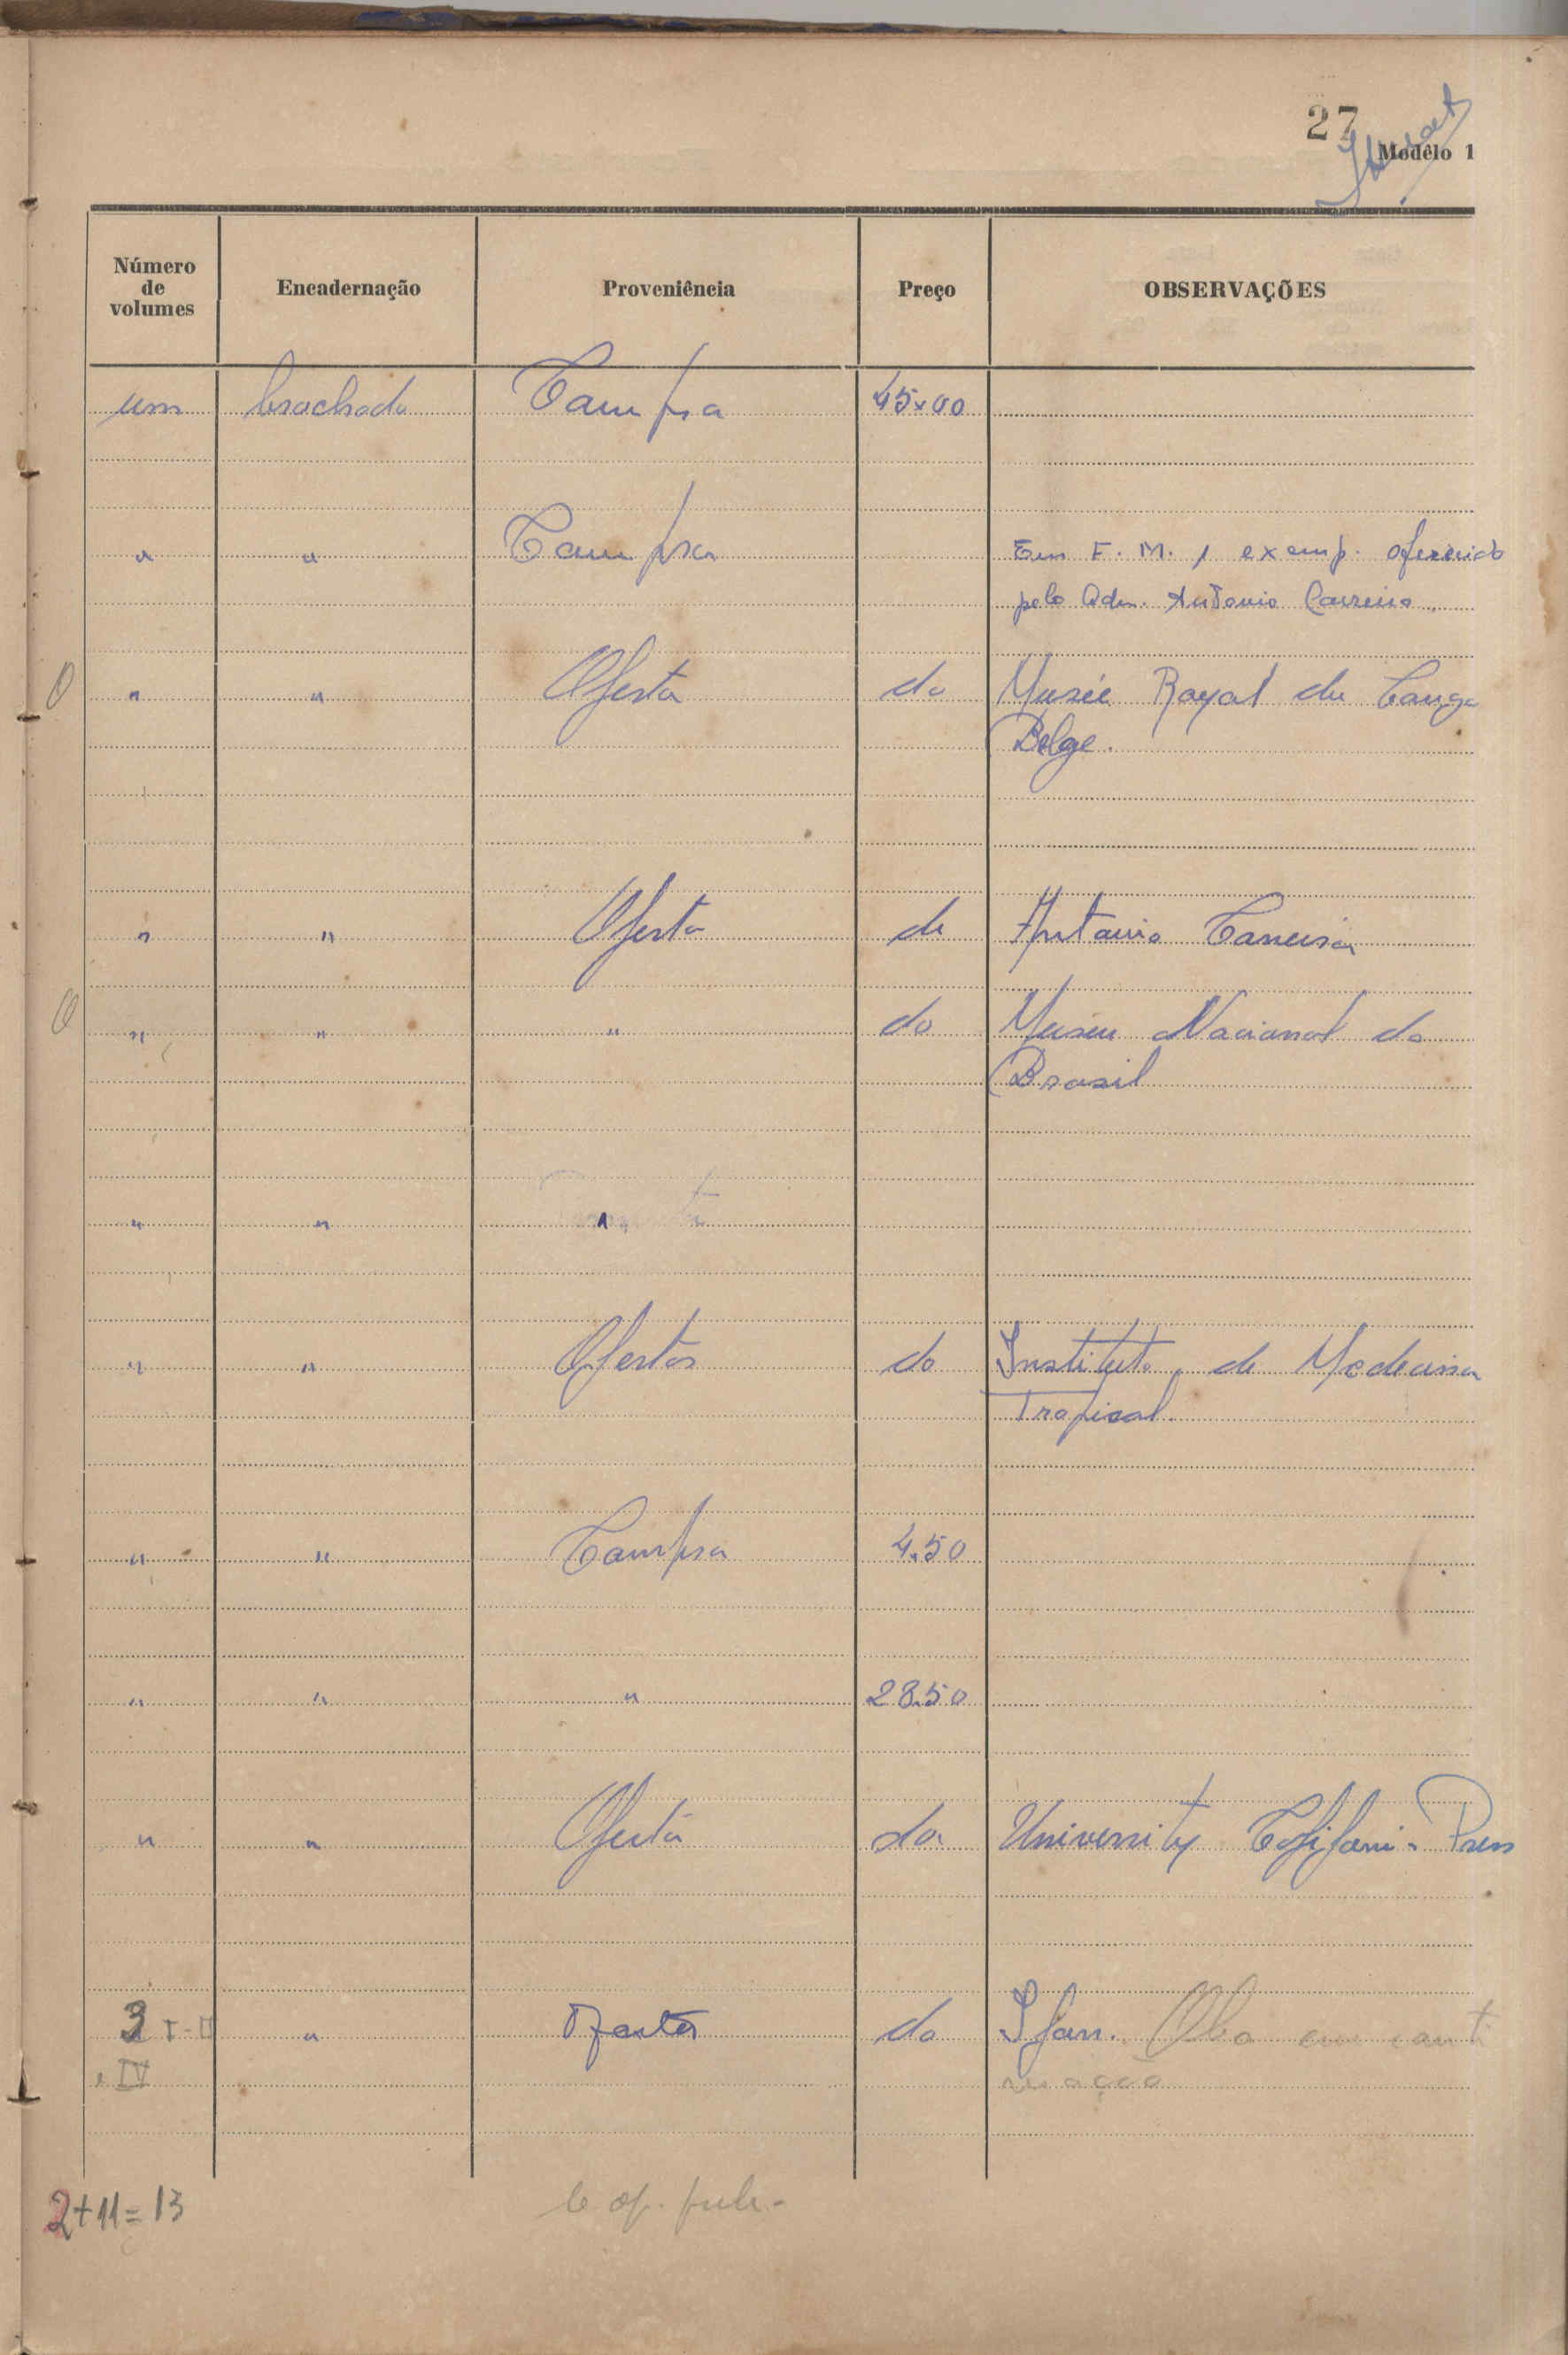 27
Modêlo 1
Número de volumes Encadernação Proveniência Preço OBSERVAÇÕES
um brochado Compra 45x00
" " Compra Em F. M. 1 exemp. oferecido
pelo Adm. António Carreira
O " " Oferta do Musée Royal du Congo
Belge.
" " Oferta de António Carreira
O " " " do Museu Nacional do
Brasil
" " "
" " Oferta do Instituto de Medicina
Tropical.
" " Compra 4.50
" " " 28.50
" " Oferta da University Press
3 I-II " Oferta do Ifan. Oba em conti
e IV nuação
2+11=13